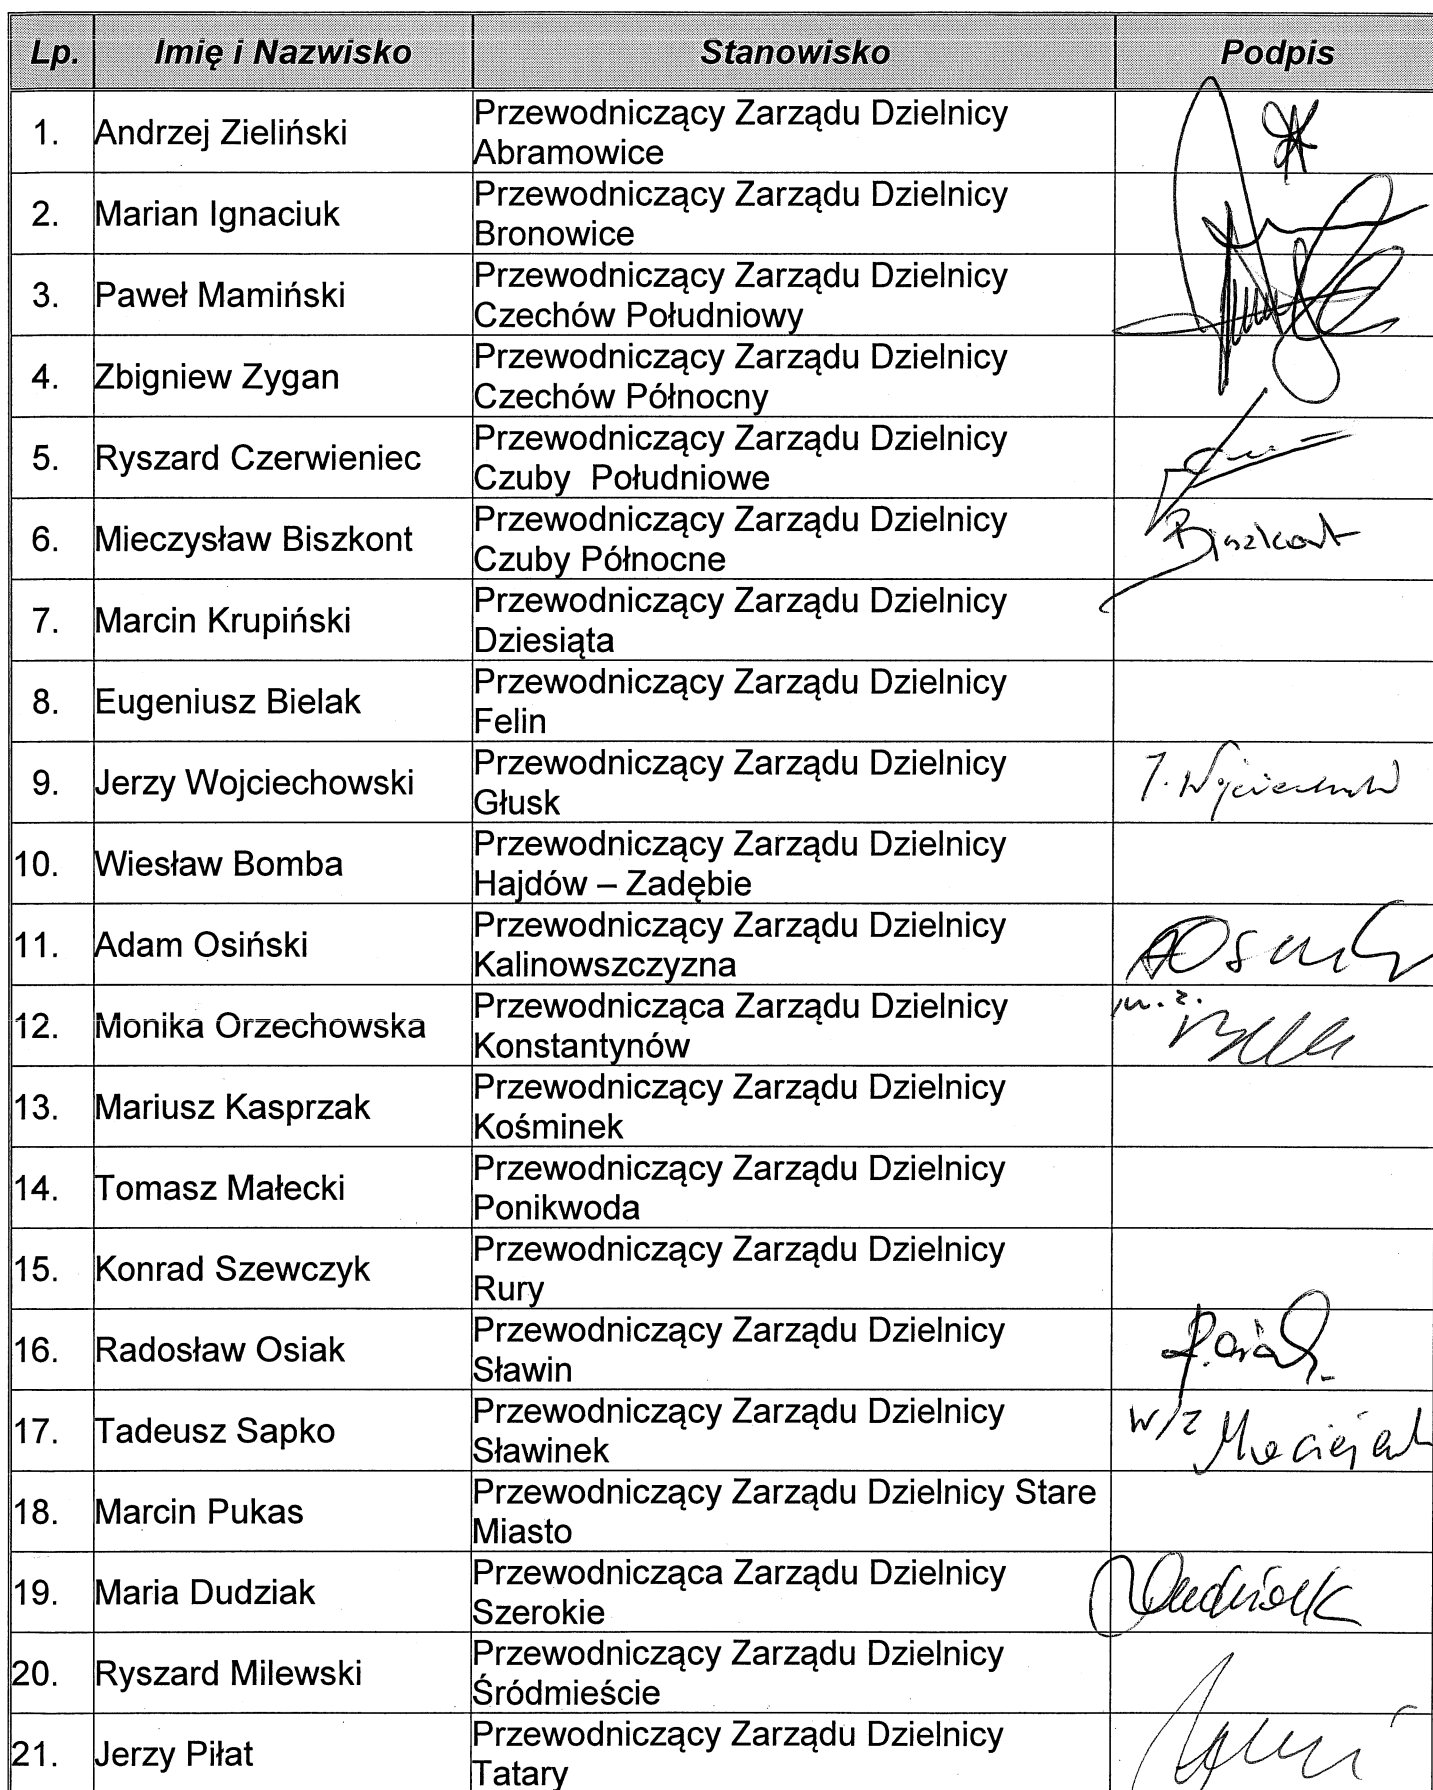 Lp. Imię i Nazwisko Stanowisko Podpis
1. Andrzej Zieliński Przewodniczący Zarządu Dzielnicy
Abramowice
2. Marian Ignaciuk Przewodniczący Zarządu Dzielnicy
Bronowice
3. Paweł Mamiński Przewodniczący Zarządu Dzielnicy
Czechów Południowy
4. Zbigniew Zygan Przewodniczący Zarządu Dzielnicy
Czechów Północny
5. Ryszard Czerwieniec Przewodniczący Zarządu Dzielnicy
Czuby Południowe
6. Mieczysław Biszkont Przewodniczący Zarządu Dzielnicy
Czuby Północne Biszkont
7. Marcin Krupiński Przewodniczący Zarządu Dzielnicy
Dziesiąta
8. Eugeniusz Bielak Przewodniczący Zarządu Dzielnicy
Felin
9. Jerzy Wojciechowski Przewodniczący Zarządu Dzielnicy
Głusk J. Wojciechowski
10. Wiesław Bomba Przewodniczący Zarządu Dzielnicy
Hajdów – Zadębie
11. Adam Osiński Przewodniczący Zarządu Dzielnicy
Kalinowszczyzna
12. Monika Orzechowska Przewodnicząca Zarządu Dzielnicy
Konstantynów
13. Mariusz Kasprzak Przewodniczący Zarządu Dzielnicy
Kośminek
14. Tomasz Małecki Przewodniczący Zarządu Dzielnicy
Ponikwoda
15. Konrad Szewczyk Przewodniczący Zarządu Dzielnicy
Rury
16. Radosław Osiak Przewodniczący Zarządu Dzielnicy
Sławin
17. Tadeusz Sapko Przewodniczący Zarządu Dzielnicy w/z
Sławinek
18. Marcin Pukas Przewodniczący Zarządu Dzielnicy Stare
Miasto
19. Maria Dudziak Przewodnicząca Zarządu Dzielnicy
Szerokie Dudziak
20. Ryszard Milewski Przewodniczący Zarządu Dzielnicy
Śródmieście
21. Jerzy Piłat Przewodniczący Zarządu Dzielnicy
Tatary